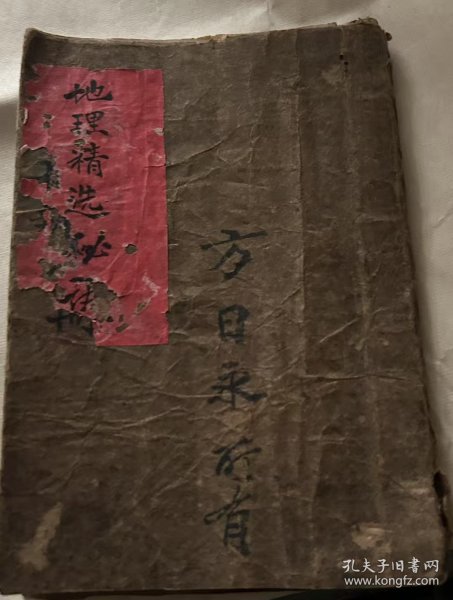 地理精选秘
方日永所有
孔夫子旧书网
www.kongfz.com